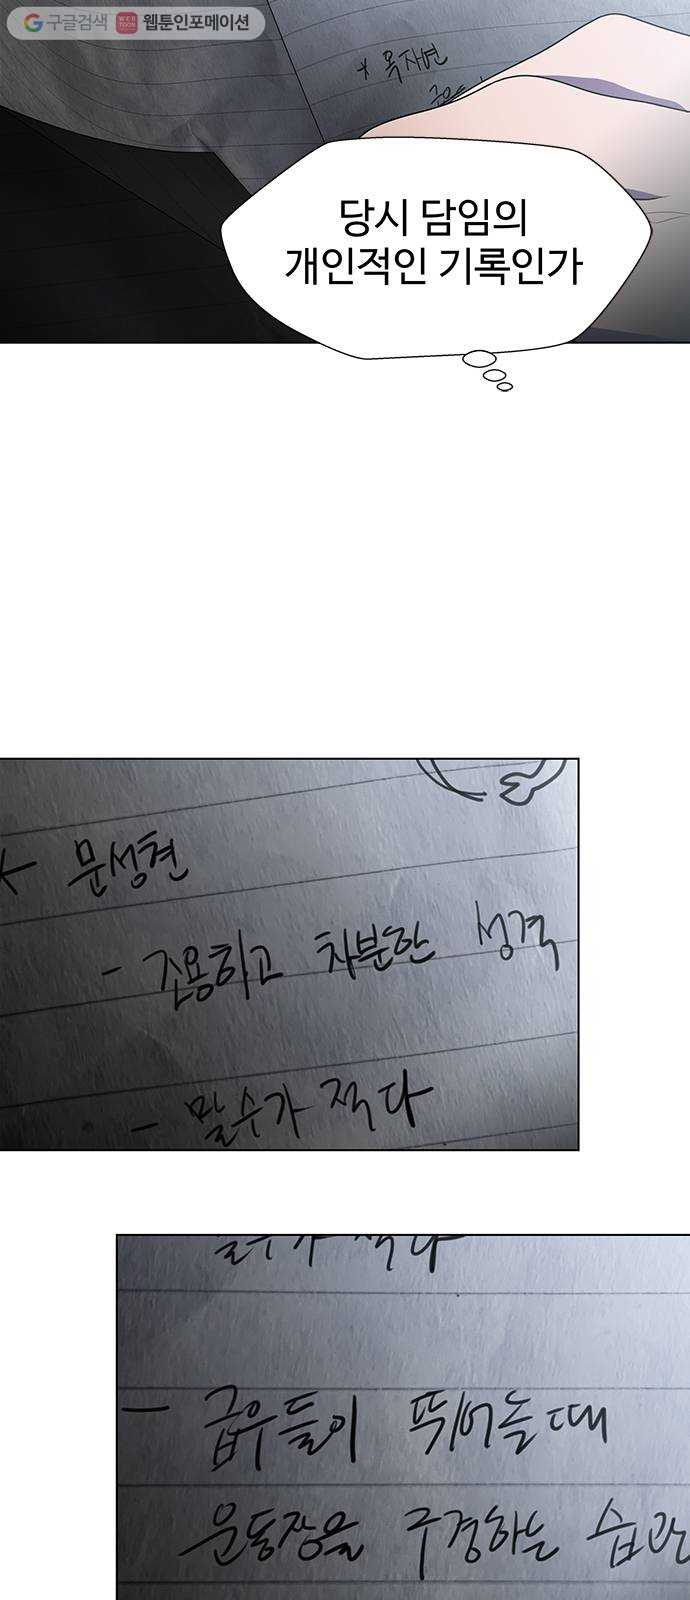 구글검색 WEB TOON 웹툰인포메이션
* 옥자변
당시 담임의
개인적인 기록인가
문성현
- 조용하고 차분한 성격
- 말수가 적다
말수가 적다
- 급우들이 뛰어놀때
운동장을 구경하는 습관